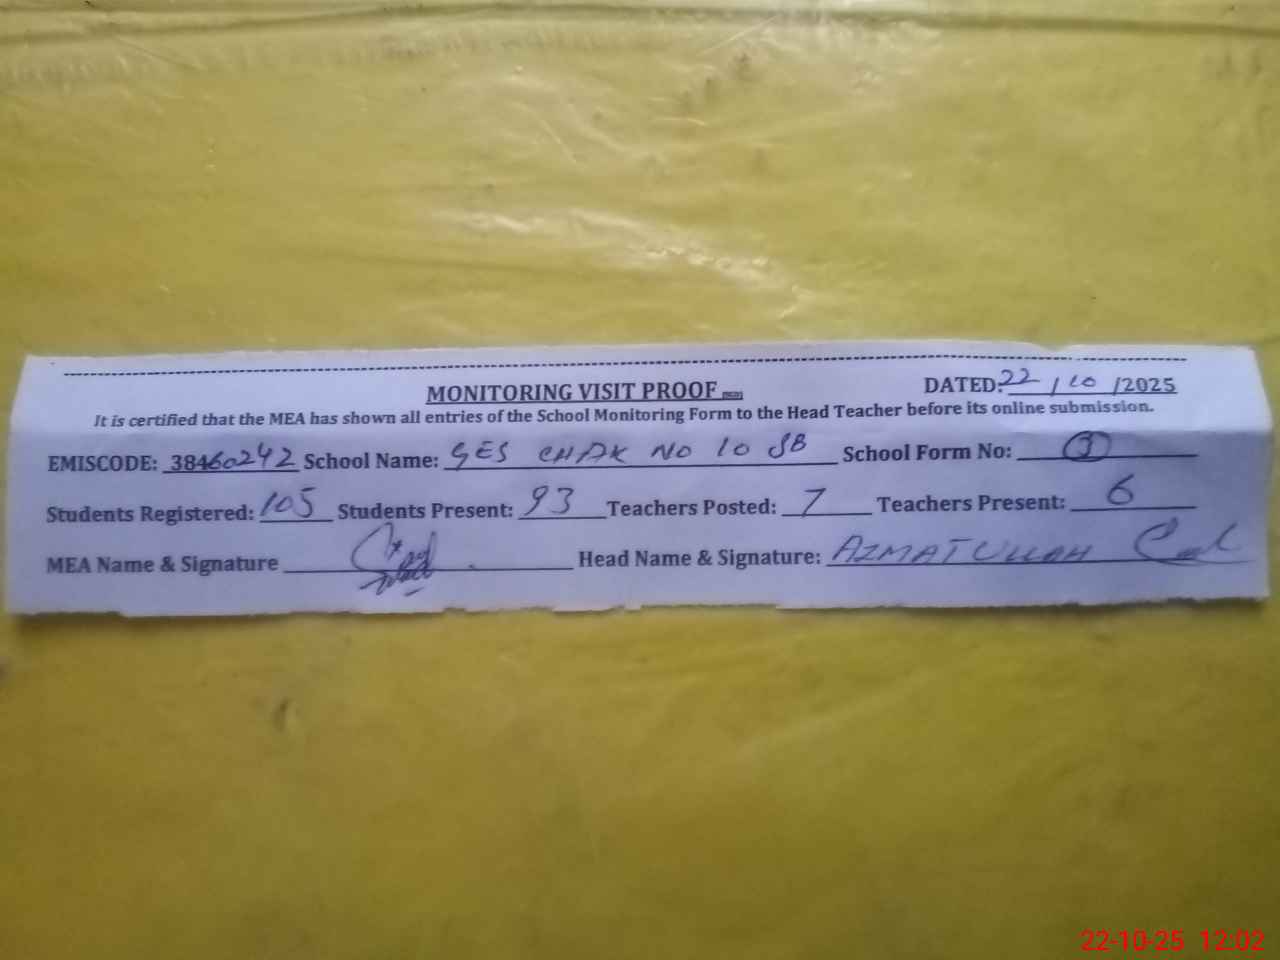 MONITORING VISIT PROOF
DATED: 22 / 10 /2025
It is certified that the MEA has shown all entries of the School Monitoring Form to the Head Teacher before its online submission.
EMISCODE: 38460242 School Name: GES CHAK NO 10 SB School Form No: 3
Students Registered: 105 Students Present: 93 Teachers Posted: 7 Teachers Present: 6
MEA Name & Signature Head Name & Signature: AZMATULLAH
22-10-25 12:02